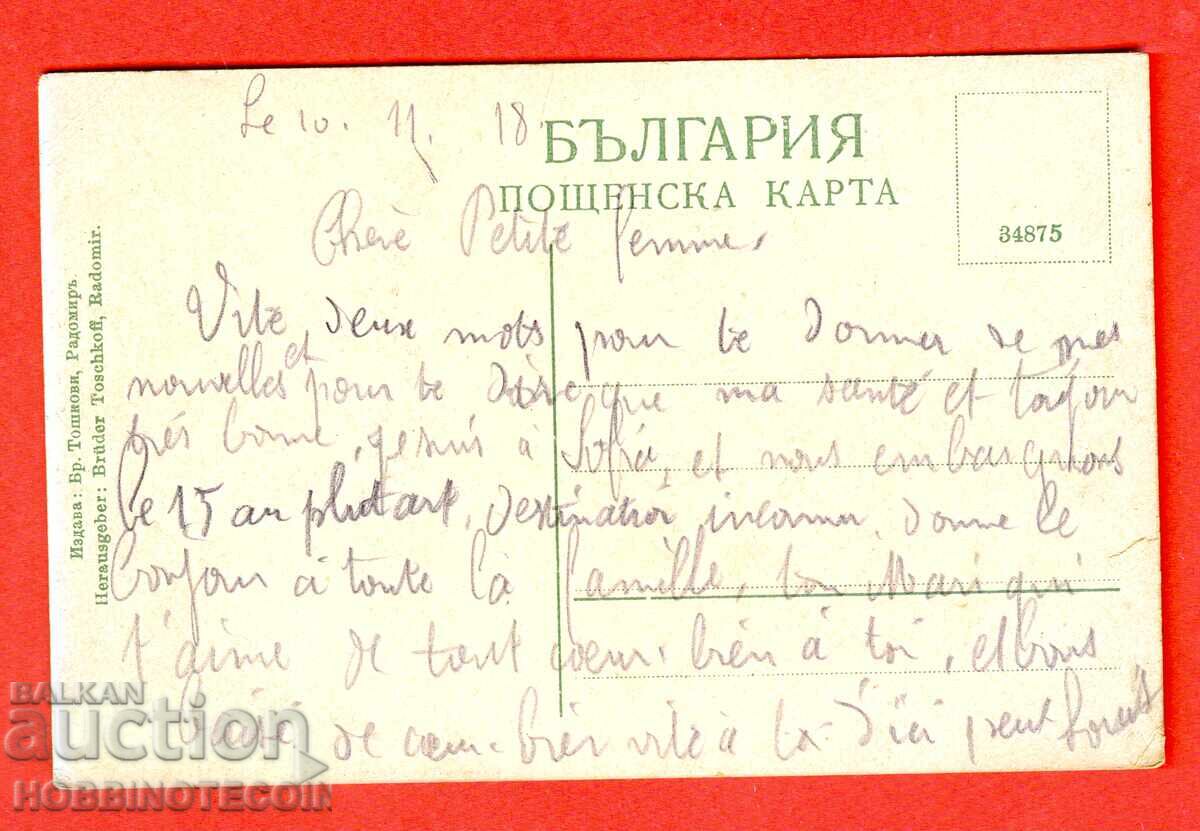 Le 10. 11. 18
БЪЛГАРИЯ
ПОЩЕНСКА КАРТА
34875
Chère Petite femme
Vite, deux mots pour te donner de mes
nouvelles et pour te dire que ma santé et toujour
très bonne, je suis à Sofia, et nous embarquons
le 15 au plutart, destination inconnu, donne le
bonjour à toute la famille, ton Mari qui
t'aime de tout coeur. bien à toi, et bons
de coeur. bien vite à
Издава: Бр. Тошкови, Радомиръ.
Herausgeber: Brüder Toschkoff, Radomir.
BALKAN
auction
HOBBINOTECOIN